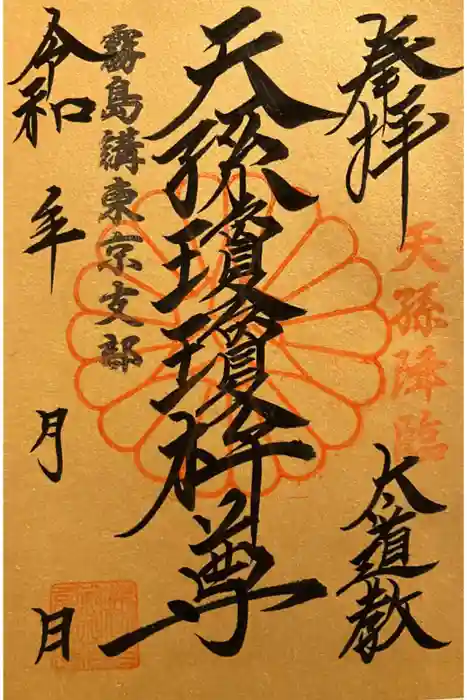 奉拝
天孫降臨
太道教
天孫瓊瓊杵尊
霧島講東京支部
令和 年 月 日